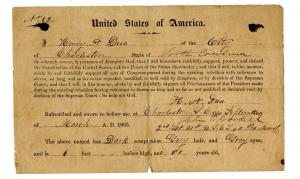 No 42
United States of America.
I, Henry A Duc of the City
of Charleston State of South Carolina
do solemnly swear, in presence of Almighty God, that I will henceforth faithfully support, protect and defend
the Constitution of the United States, and the Union of the States thereunder; and that I will, in like manner,
abide by and faithfully support all acts of Congress passed during the existing rebellion with reference to
slaves, so long and so far as not repealed, modified, or held void by Congress, or by decision of the Supreme
Court; and that I will, in like manner, abide by and faithfully support all proclamations of the President
made during the existing rebellion having reference to slaves, so long and so far as not modified or declared void by decision of the
Supreme Court: So help me God.
H. A. Duc
Subscribed and sworn to before me, at Charleston S. C. this Fifteenth day
of March A. D. 1865.
The above named has Dark complexion Grey hair, and Grey eyes;
and is 5 feet inches high, and years old,